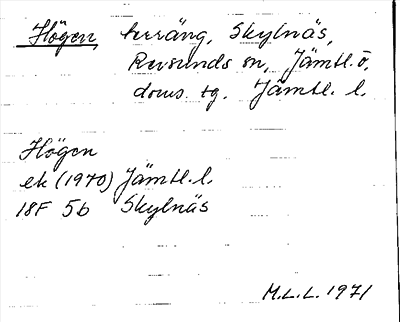 Högen, terräng, Skylnäs,
Revsunds sn, Jämtl. ö.
doms. tg. Jämtl. l.
Högen
ek (1970) Jämtl. l.
18F 5b Skylnäs
M.L.L. 1971